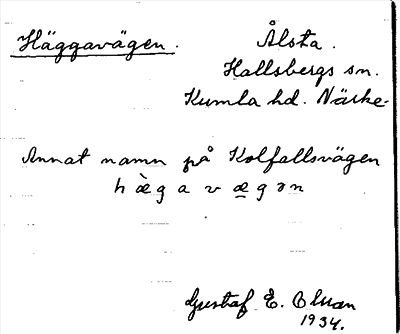 Häggavägen. Ålsta.
Hallsbergs sn.
Kumla hd. Närke.
Annat namn på Kolfallsvägen
hæ̀gavæ̱gən
Gustaf E. Olsson
1934.